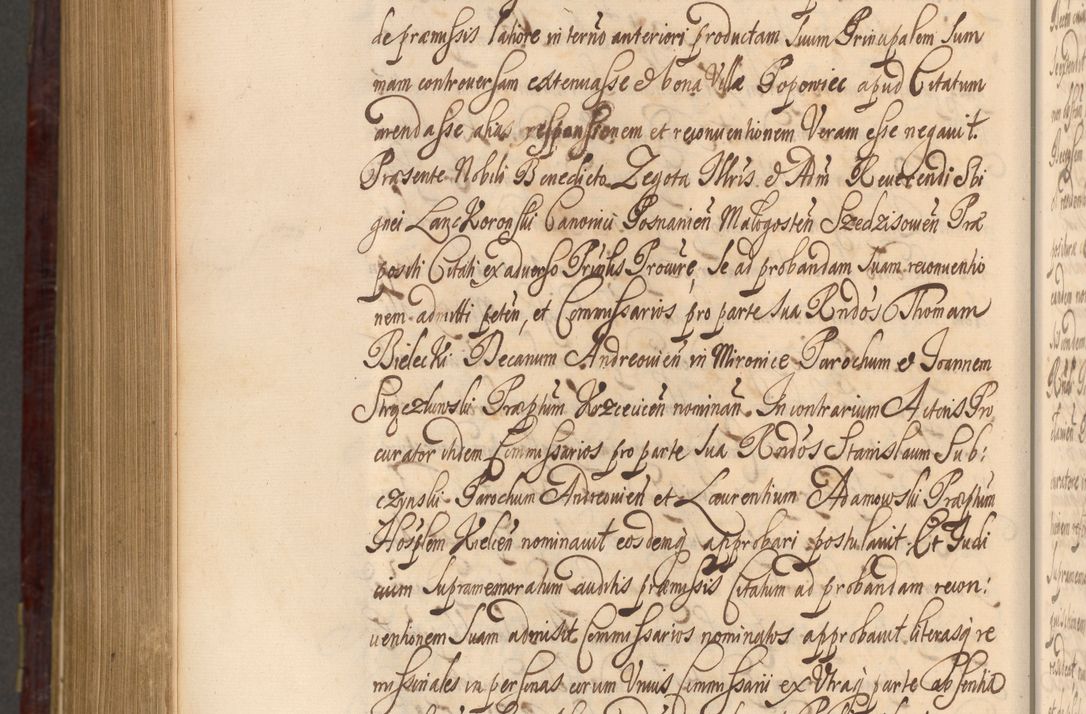 de præmissis latiore in terno anteriori productam suum Principalem Sum
mam controversam extenuasse et bona Villæ Popowiec apud Citatum
arendasse alias responsionem et reconventionem Veram esse negavit.
Præsente Nobili Benedicto Zegota Illris. et Adm Reverendi Sbi
gnei Lanckoronski Canonici Posnanien Małogosten Szedzisowien Præ
positi Citati ex adverso Prplis Procure, se ad probandam suam reconventio
nem admitti peten, et Commissarios pro parte sua Rndos Thomam
Bielecki Decanum Andreovien in Mironice Parochum et Joannem
Præptum Krzcicien nominan. In contrarium Actoris Pro
curator itidem Commissarios pro parte sua Rndos Stanislaum Sub:
czynski Parochum Andreovien et Laurentium Adamowski Præptum
Hosplem Kielcen nominavit eosdemq approbari postulavit. Et Judi
cium supramemoratum auditis præmissis Citatum ad probandam recon:
ventionem suam admisit Commissarios nominatos approbavit literasq re
missionales in personas eorum Unius Commissarii ex Utraq parte absentia